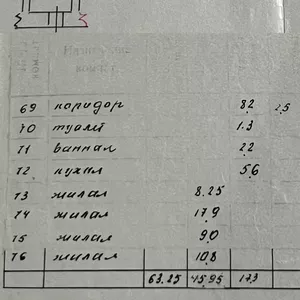 69 коридор 8.2 2,5
70 туалет 1.3
71 ванная 2.2
72 кухня 5.6
73 жилая 8.25
74 жилая 17.9
75 жилая 9.0
76 жилая 10.8
63.25 45.95 17.3